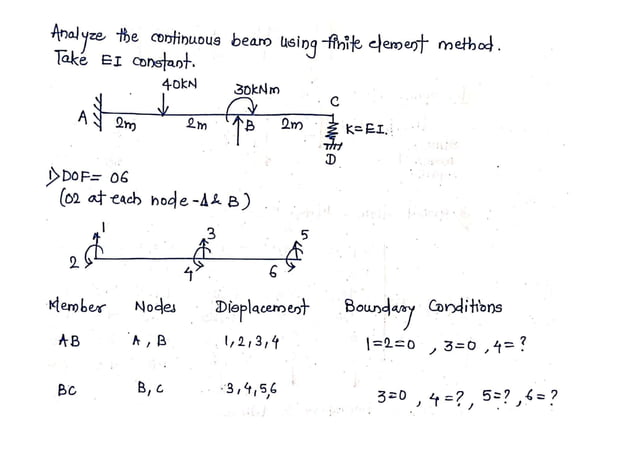 Analyze the continuous beam using finite element method.
Take EI constant.
40KN
30KNm
C
A
2m
2m
B
2m
K=EI.
D
1) DOF= 06
(02 at each node -Δ & B)
1
3
5
2
4
6
Member Nodes Displacement Boundary Conditions
AB A, B 1,2,3,4 1=2=0, 3=0, 4=?
BC B, C 3,4,5,6 3=0, 4=?, 5=?, 6=?